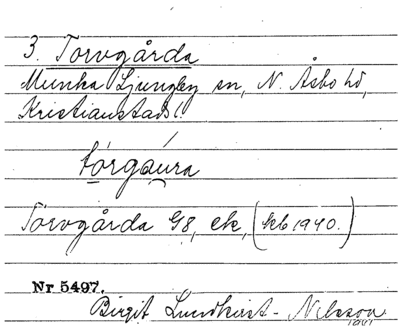 3. Torvgårda
Munka Ljungby sn, N. Åsbo hd,
Kristianstads l.
tórgàura
Torvgårda G8, ek, (kb 1940.)
Nr 5497.
Birgit Lundkvist - Nilsson